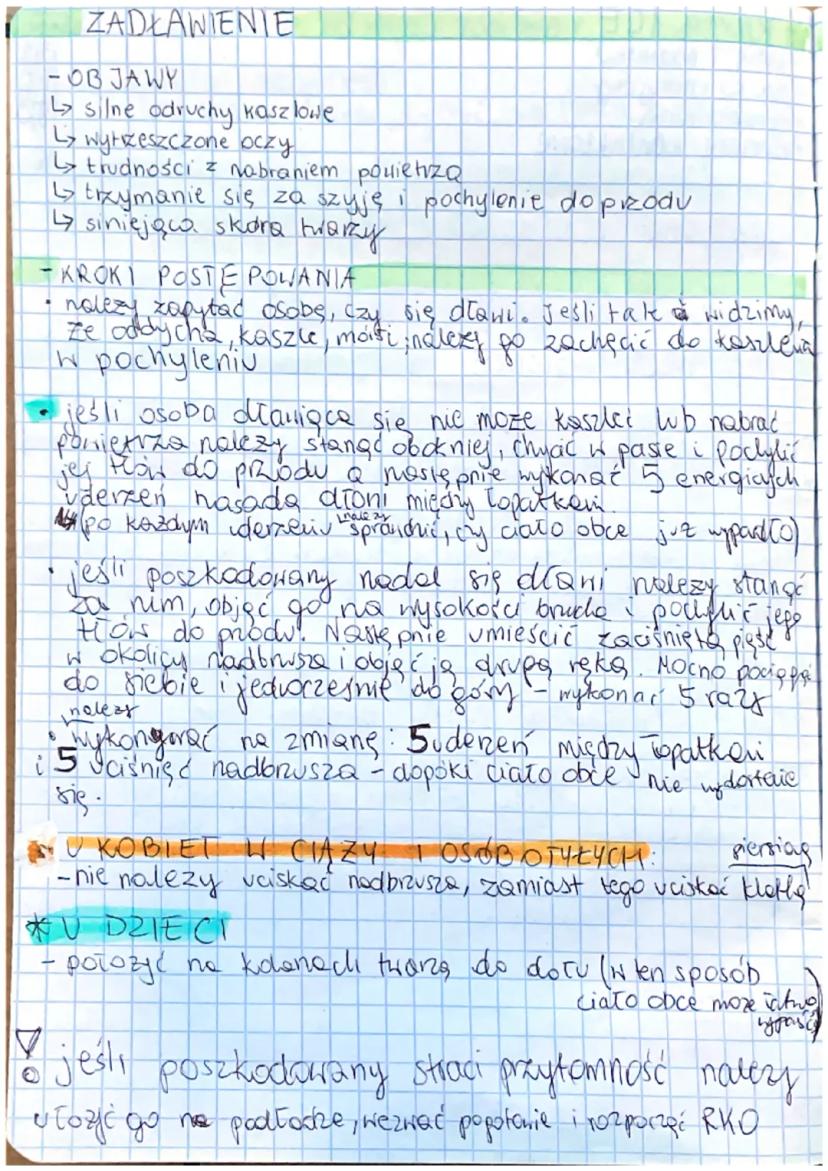 ZADŁAWIENIE
- OBJAWY
↳ silne odruchy kaszlowe
↳ wytrzeszczone oczy
↳ trudności z nabraniem powietrza
↳ trzymanie się za szyję i pochylenie do przodu
↳ siniejąca skóra twarzy
- KROKI POSTĘPOWANIA
• należy zapytać osobę, czy się dławi. Jeśli tak i widzimy,
że oddycha, kaszle, mówi; należy go zachęcić do kaszlenia
w pochyleniu
• jeśli osoba dławiąca się nie może kaszleć lub nabrać
powietrza należy stanąć obok niej, chwycić w pasie i pochylić
jej tłów do przodu a następnie wykonać 5 energicznych
uderzeń nasadą dłoni między łopatkami.
(po każdym uderzeniu należy sprawdzić, czy ciało obce już wypadło)
• jeśli poszkodowany nadal się dławi należy stanąć
za nim, objąć go na wysokości brzucha i pochylić jego
tłów do przodu. Następnie umieścić zaciśniętą pięść
w okolicy nadbrzusza i objąć ją drugą ręką. Mocno pociągnąć
do siebie i jednocześnie do góry - wykonać 5 razy
• należy wykonywać na zmianę: 5 uderzeń między łopatkami
i 5 uciśnięć nadbrzusza - dopóki ciało obce nie wydostanie
się.
* U KOBIET W CIĄŻY I OSÓB OTYŁYCH:
- nie należy uciskać nadbrzusza, zamiast tego uciskać klatkę piersiową
* U DZIECI
- położyć na kolanach twarzą do dołu (w ten sposób
ciało obce może łatwo
wypaść)
! jeśli poszkodowany straci przytomność należy
ułożyć go na podłodze, wezwać pogotowie i rozpocząć RKO